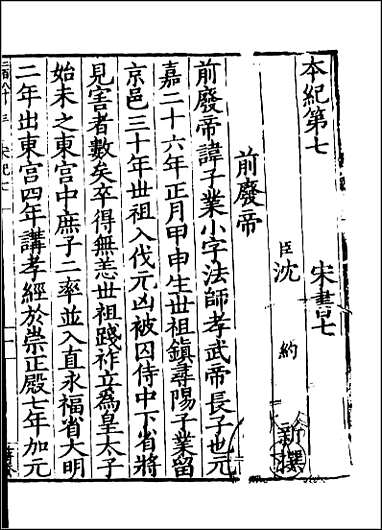 本紀第七　宋書七
臣沈約新撰
前廢帝
前廢帝諱子業小字法師孝武帝長子也元
嘉二十六年正月甲申生世祖鎮尋陽子業留
京邑三十年世祖入伐元凶被囚侍中下省將
見害者數矣卒得無恙世祖踐祚立為皇太子
始未之東宮中庶子二率並入直永福省大明
二年出東宮四年講孝經於崇正殿七年加元
宋紀七